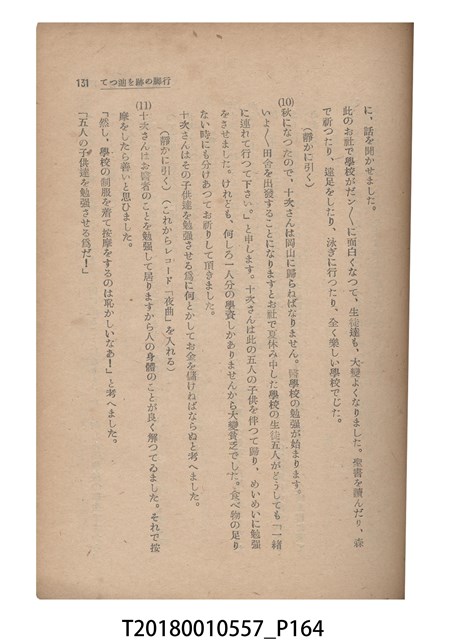 行脚の跡を廻つて　131
に、話を聞かせました。
此のお社で學校がだン〳〵に面白くなつて、生徒達も、大變よくなりました。聖書を讀んだり、森
で祈つたり、遠足をしたり、泳ぎに行つたり、全く樂しい學校でした。
（靜かに引く）
(10)秋になつたので、十次さんは岡山に歸らねばなりません。醫學校の勉强が始まります。
いよ〳〵田舍を出發することになりますとお社で夏休み中した學校の生徒五人がどうしても「一緖
に連れて行つて下さい。」と申します。十次さんは此の五人の子供を伴つて歸り、めいめいに勉强
をさせました。けれども、何しろ一人分の學資しかありませんから大變貧乏でした。食べ物の足り
ない時にも分けあつてお祈りして頂きました。
十次さんはその子供達を勉强させる爲に何とかしてお金を儲けねばならぬと考へました。
（靜かに引く）（これからレコード「夜曲」を入れる）
(11)十次さんはお醫者のことを勉强して居りますから人の身體のことが良く解つてゐました。それで按
摩をしたら善いと思ひました。
「然し、學校の制服を着て按摩をするのは恥かしいなあ！」と考へました。
「五人の子供達を勉强させる爲だ！」
T20180010557_P164